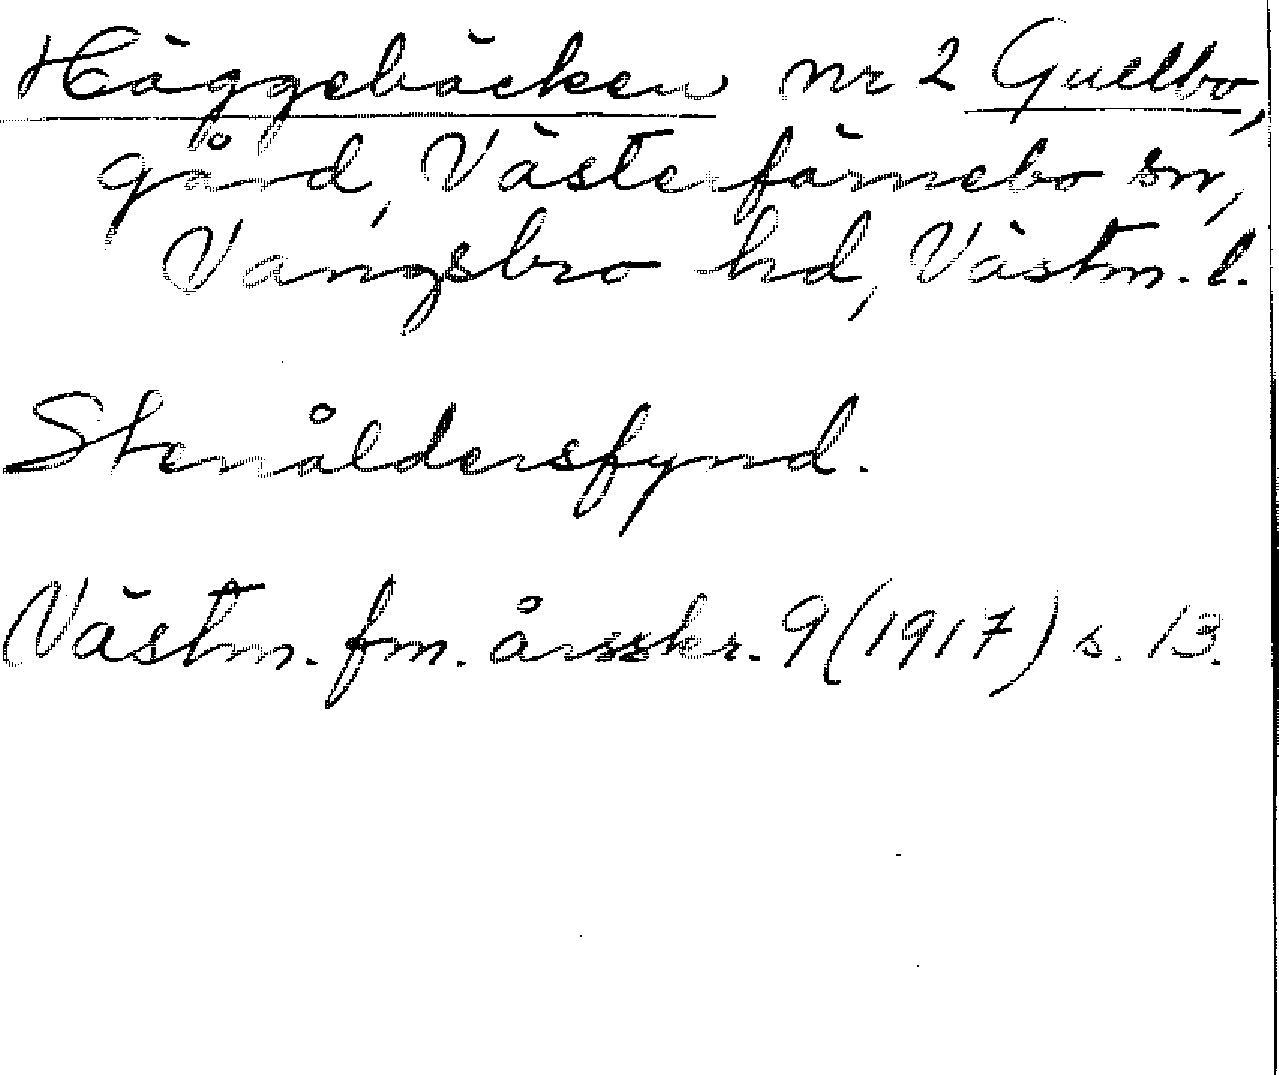 Häggebäcken nr 2 Gullbo,
gård, Västerfärnebo sn,
Vangsbro hd, Västm. l.
Stenåldersfynd.
Västm. fm. årsskr. 9 (1917) s. 13.